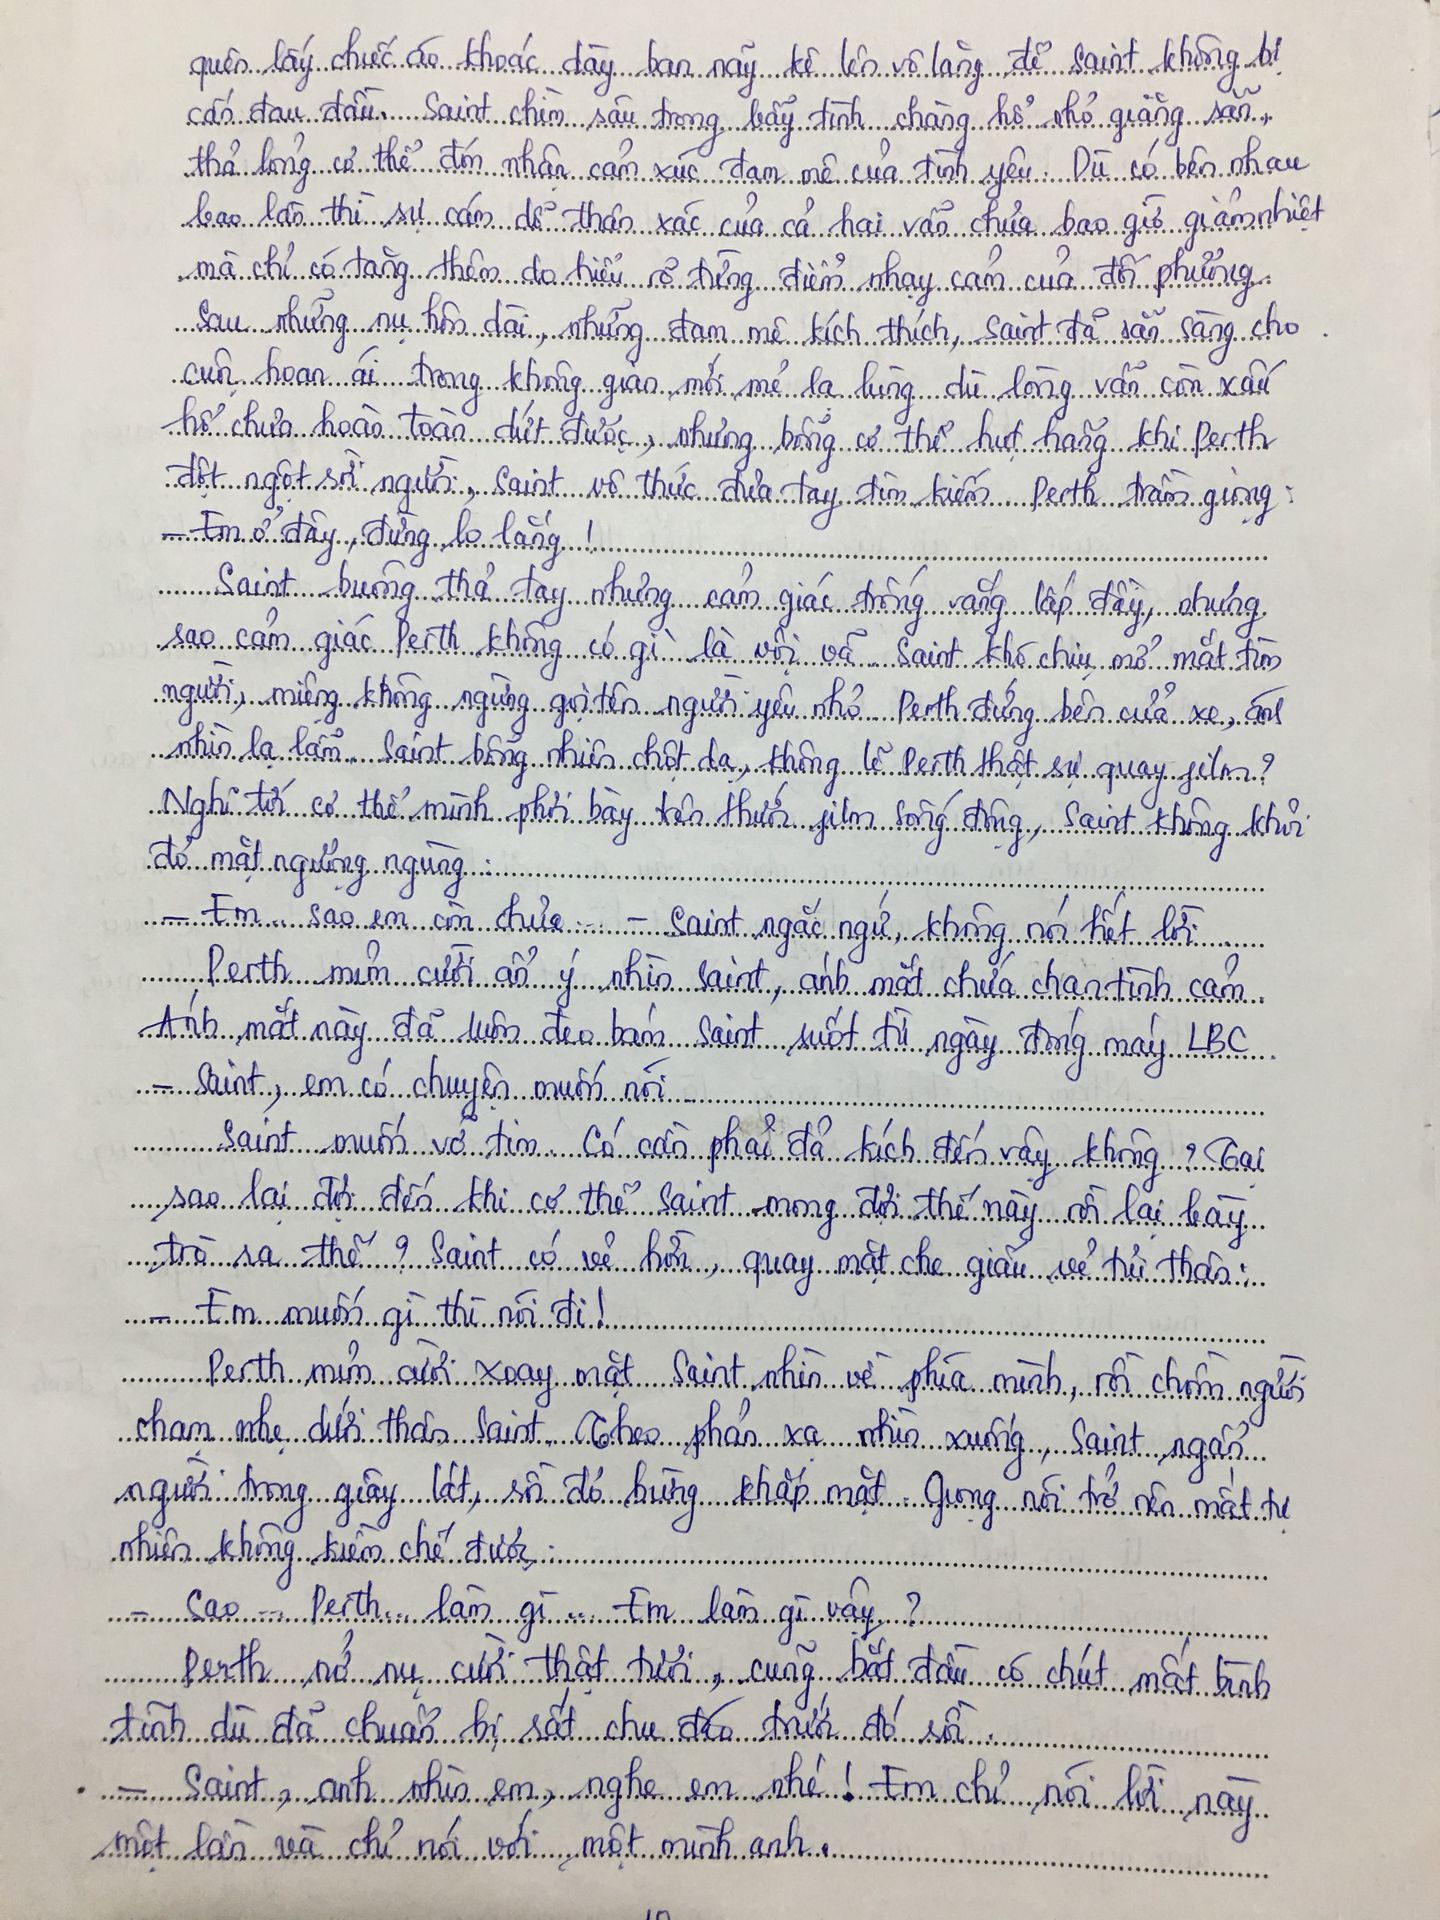 quên lấy chiếc áo khoác dày ban nãy kê lên vô lăng để Saint không bị
cấn đau đầu. Saint chìm sâu trong bẫy tình chàng hổ nhỏ giăng sẵn,
thả lỏng cơ thể đón nhận cảm xúc đam mê của tình yêu. Dù có bên nhau
bao lần thì sự cám dỗ thân xác của cả hai vẫn chưa bao giờ giảm nhiệt
mà chỉ có tăng thêm do hiểu rõ từng điểm nhạy cảm của đối phương.
Sau những nụ hôn dài, những đam mê kích thích, Saint đã sẵn sàng cho
cuộc hoan ái trong không gian mới mẻ lạ lùng dù lòng vẫn còn xấu
hổ chưa hoàn toàn dứt được, nhưng bỗng cơ thể hụt hẫng khi Perth
đột ngột rời người, Saint vô thức đưa tay tìm kiếm. Perth trầm giọng:
- Em ở đây, đừng lo lắng!
Saint buông thả tay nhưng cảm giác trống vắng lấp đầy, nhưng
sao cảm giác Perth không có gì là vội vã. Saint khó chịu mở mắt tìm
người, miệng không ngừng gọi tên người yêu nhỏ. Perth đứng bên cửa xe, ánh
nhìn lạ lẫm. Saint bỗng nhiên chột dạ, không lẽ Perth thật sự quay film?
Nghĩ tới cơ thể mình phơi bày trên thước film sống động, Saint không khỏi
đỏ mặt ngượng ngùng:
- Em... sao em còn chưa... - Saint ngắc ngứ, không nói hết lời.
Perth mỉm cười ẩn ý nhìn Saint, ánh mắt chứa chan tình cảm.
Ánh mắt này đã luôn đeo bám Saint suốt từ ngày đóng máy LBC.
- Saint, em có chuyện muốn nói.
Saint muốn vỡ tim. Có cần phải đả kích đến vậy không? Tại
sao lại đợi đến khi cơ thể Saint mong đợi thế này rồi lại bày
trò ra thế? Saint có vẻ hờn, quay mặt che giấu vẻ tủi thân:
- Em muốn gì thì nói đi!
Perth mỉm cười xoay mặt Saint nhìn về phía mình, rồi chồm người
chạm nhẹ dưới thân Saint. Theo phản xạ nhìn xuống, Saint ngẩn
người trong giây lát, rồi đỏ bừng khắp mặt. Giọng nói trở nên mất tự
nhiên không kiềm chế được:
- Sao... Perth... làm gì... Em làm gì vậy?
Perth nở nụ cười thật tươi, cũng bắt đầu có chút mất bình
tĩnh dù đã chuẩn bị rất chu đáo trước đó rồi.
- Saint, anh nhìn em, nghe em nhé! Em chỉ nói lời này
một lần và chỉ nói với một mình anh.